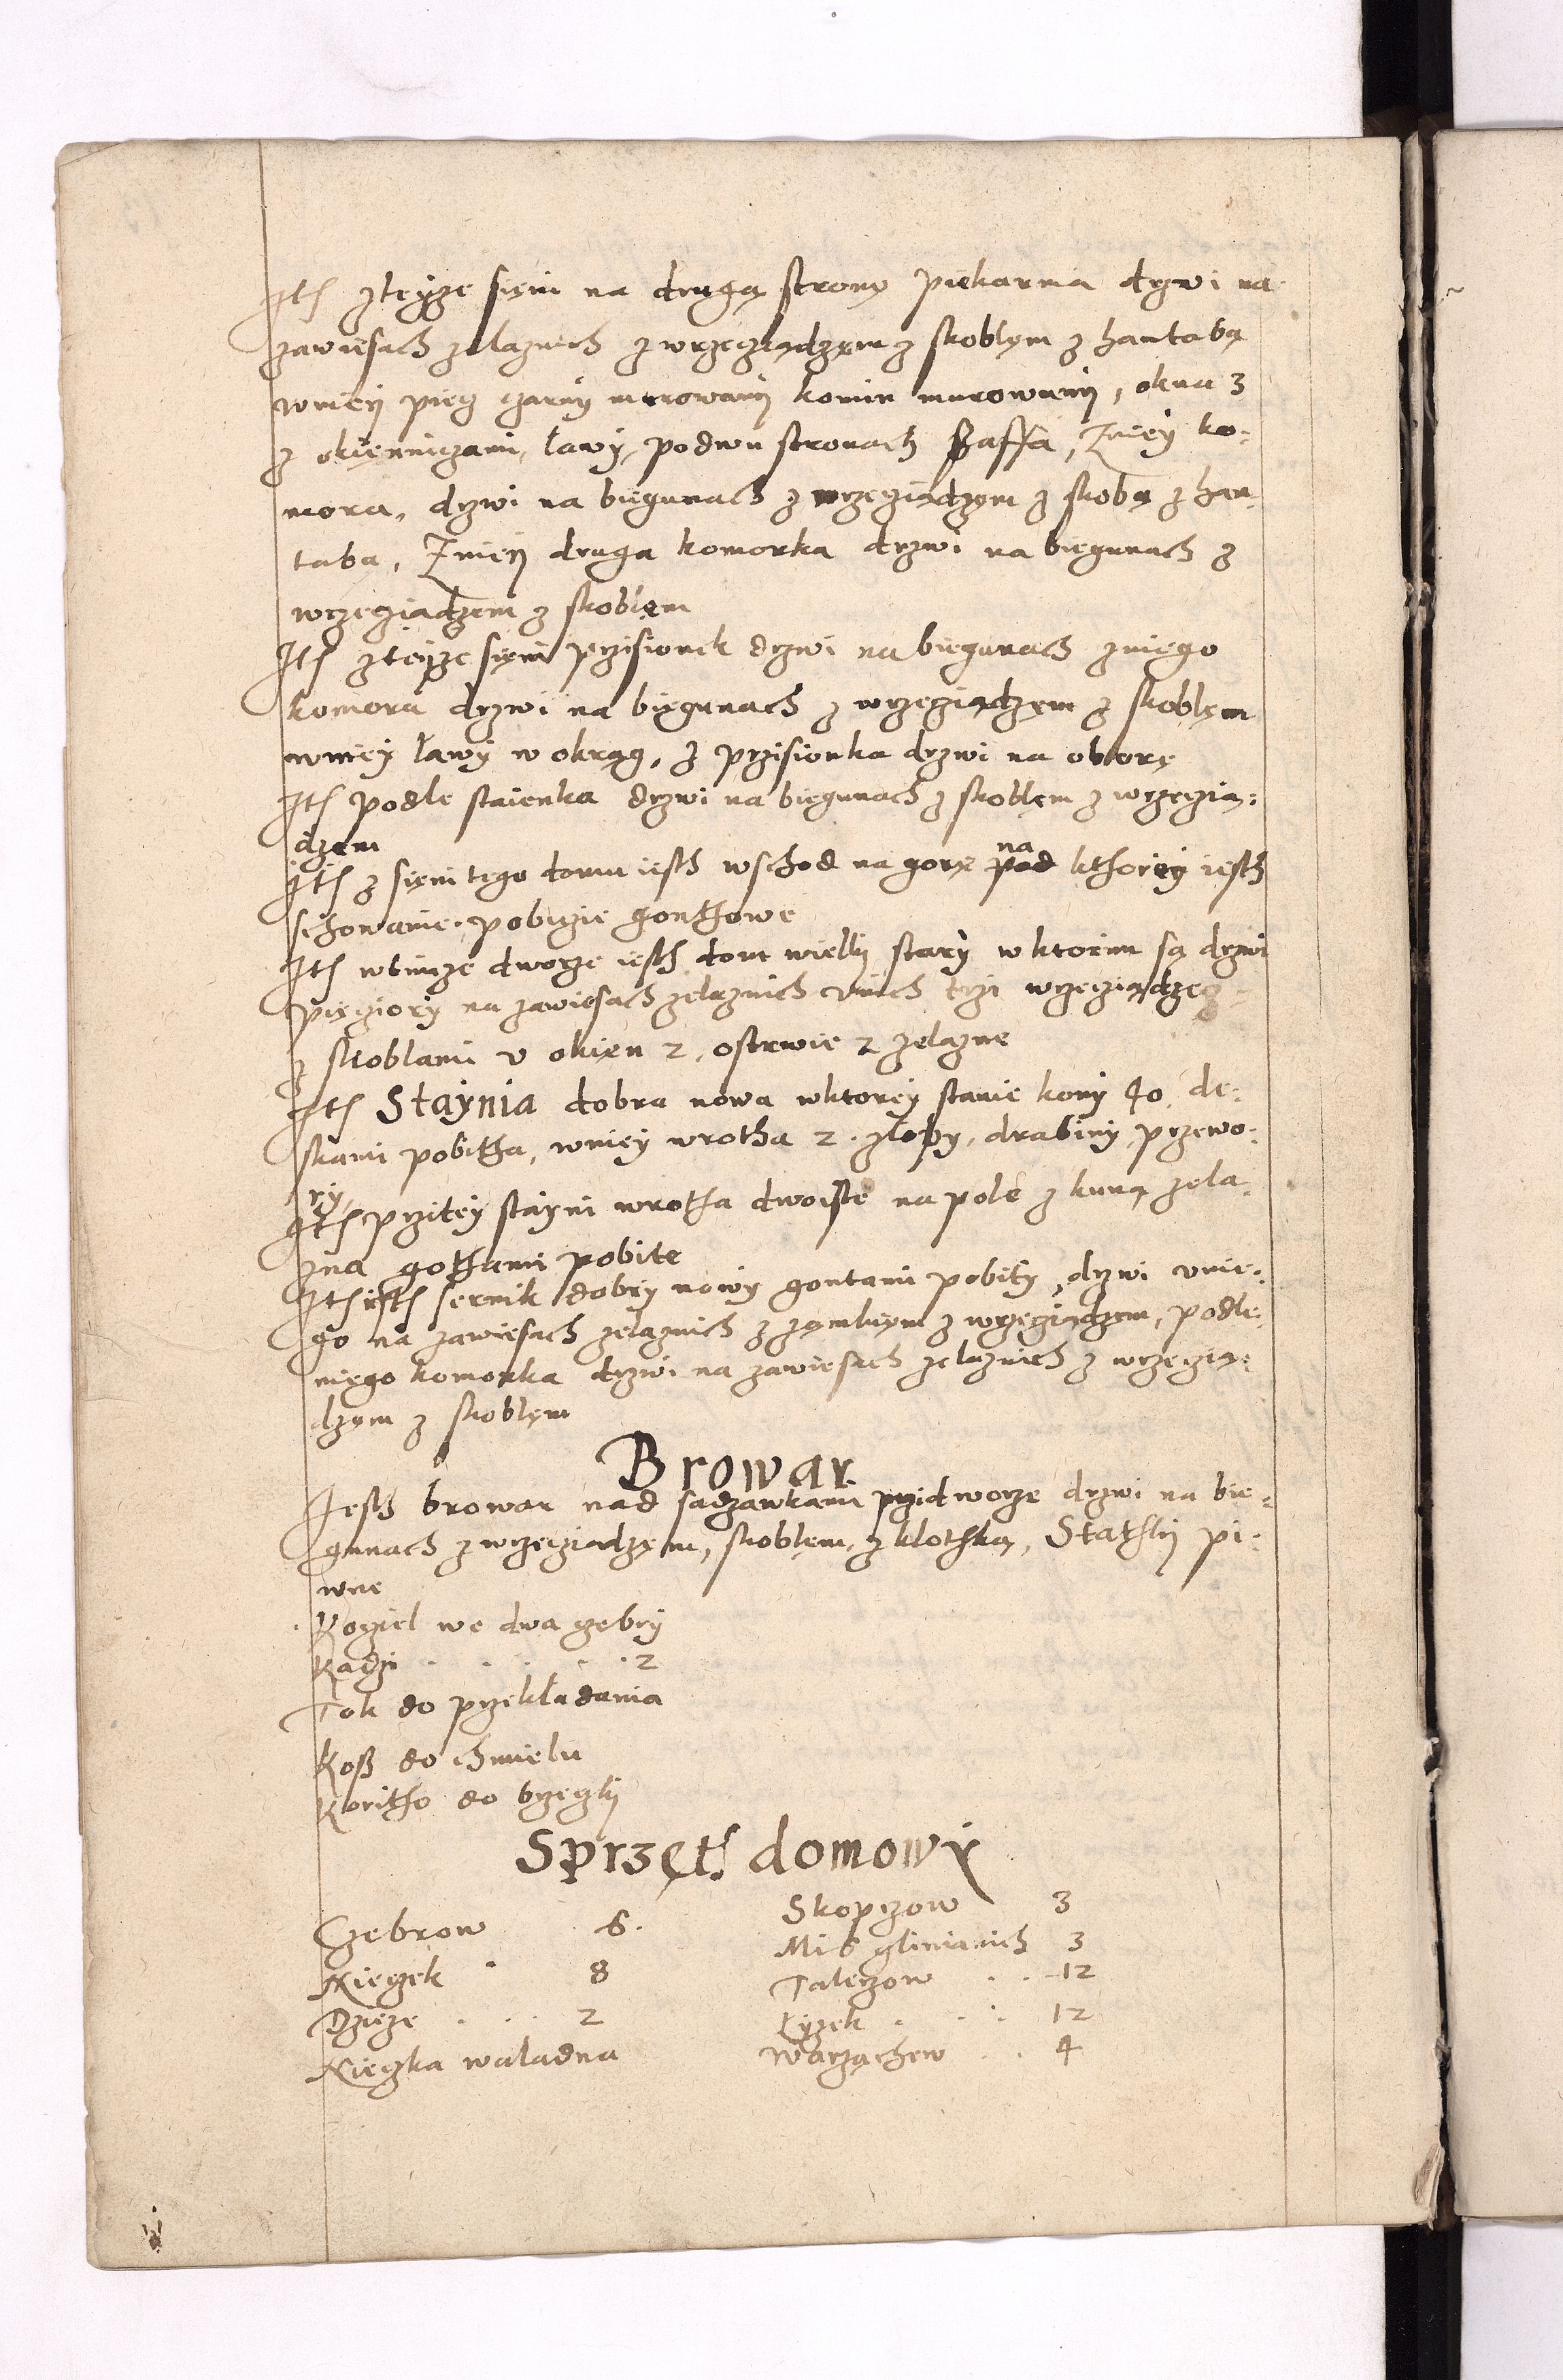 Ith zteyże sięni na drugą stronę piekarnia drzwi na
zawiesach zelaznich z wrzeciądzęm z skoblęm z hantabą
wniey piec czarny murowany komin murowany, okna 3
z okięnniczami, ławy podwu stronach szaffa, Zniey ko-
mora, drzwi na biegunach z wrzeciądzęm z skobą z han-
taba, Zniey druga komorka drzwi na biegunach z
wrzeciadzem z skoblęm
Ith zteyże sięni przisionek drzwi na biegunach zniego
komora drzwi na biegunach z wrzeciądzęm z skoblęm
wniey ławy w okrąg, z przisionka drzwi na oborę
Ith podle staienka drzwi na biegunach z skoblęm z wrzecią-
dzem
Ith z sięni tego domu iesth wschod na gorę na pod kthorey iesth
schowanie pobicie gonthowe
Ith wtimże dworze iesth dom wielki stary w ktorim są drzwi
pięciory na zawiesach zelaznich unich trzi wrzeciądze
z skoblami v okien 2, ostrwie 2 zelazne
Ith Staynia dobra nowa wktorey stanie kony 40 de-
skami pobitha, wniey wrotha 2. złoby, drabiny przewo-
ry
Ith przitey stayni wrotha dwoiste na pole z kuną żela-
zna gothami pobite
Ith iesth sernik dobry nowy gontami pobity, drzwi vnie-
go na zawiesach zelaznich z zęmknięm z wrzeciądzem, podle
niego komorka drzwi na zawiesach zelaznich z wrzecią-
dzęm z skoblęm
Browar
Iesth browar nad sadzawkami przidworze drzwi na bie-
gunach z wrzeciadzęm, skoblęm, z klothką, Stathki pi-
wne
Kociel we dwa czebry
Kadzi 2
Tok do przekładania
Kosz do chmielu
Koritho do brzeczki
Sprzęth domowy
Czebrow 6.
Skopczow 3
Mis glinianich 3
Nieczek 8
Talerzow 12
Dzieże 2
Łyżek 12
Nieczka waladna
Warząchew 4